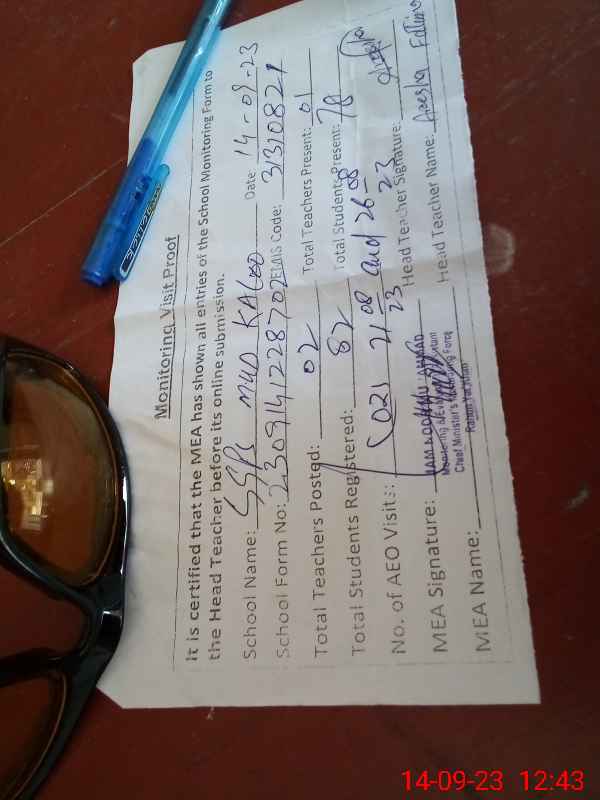 Monitoring Visit Proof
It is certified that the MEA has shown all entries of the School Monitoring Form to
the Head Teacher before its online submission.
School Name: SSPS MUD KALOO Date 14-09-23
School Form No: 230914122870 EMIS Code: 31310821
Total Teachers Posted: 02 Total Teachers Present: 01
Total Students Registered: 82 Total Students Present: 78
No. of AEO Visits: (02) 21-08-23 and 26-08-23
MEA Signature: Head Teacher Signature:
MEA Name: Head Teacher Name: Ayesha Fatima
Chief Minister's Monitoring Force
Rahim Yar Khan
14-09-23 12:43